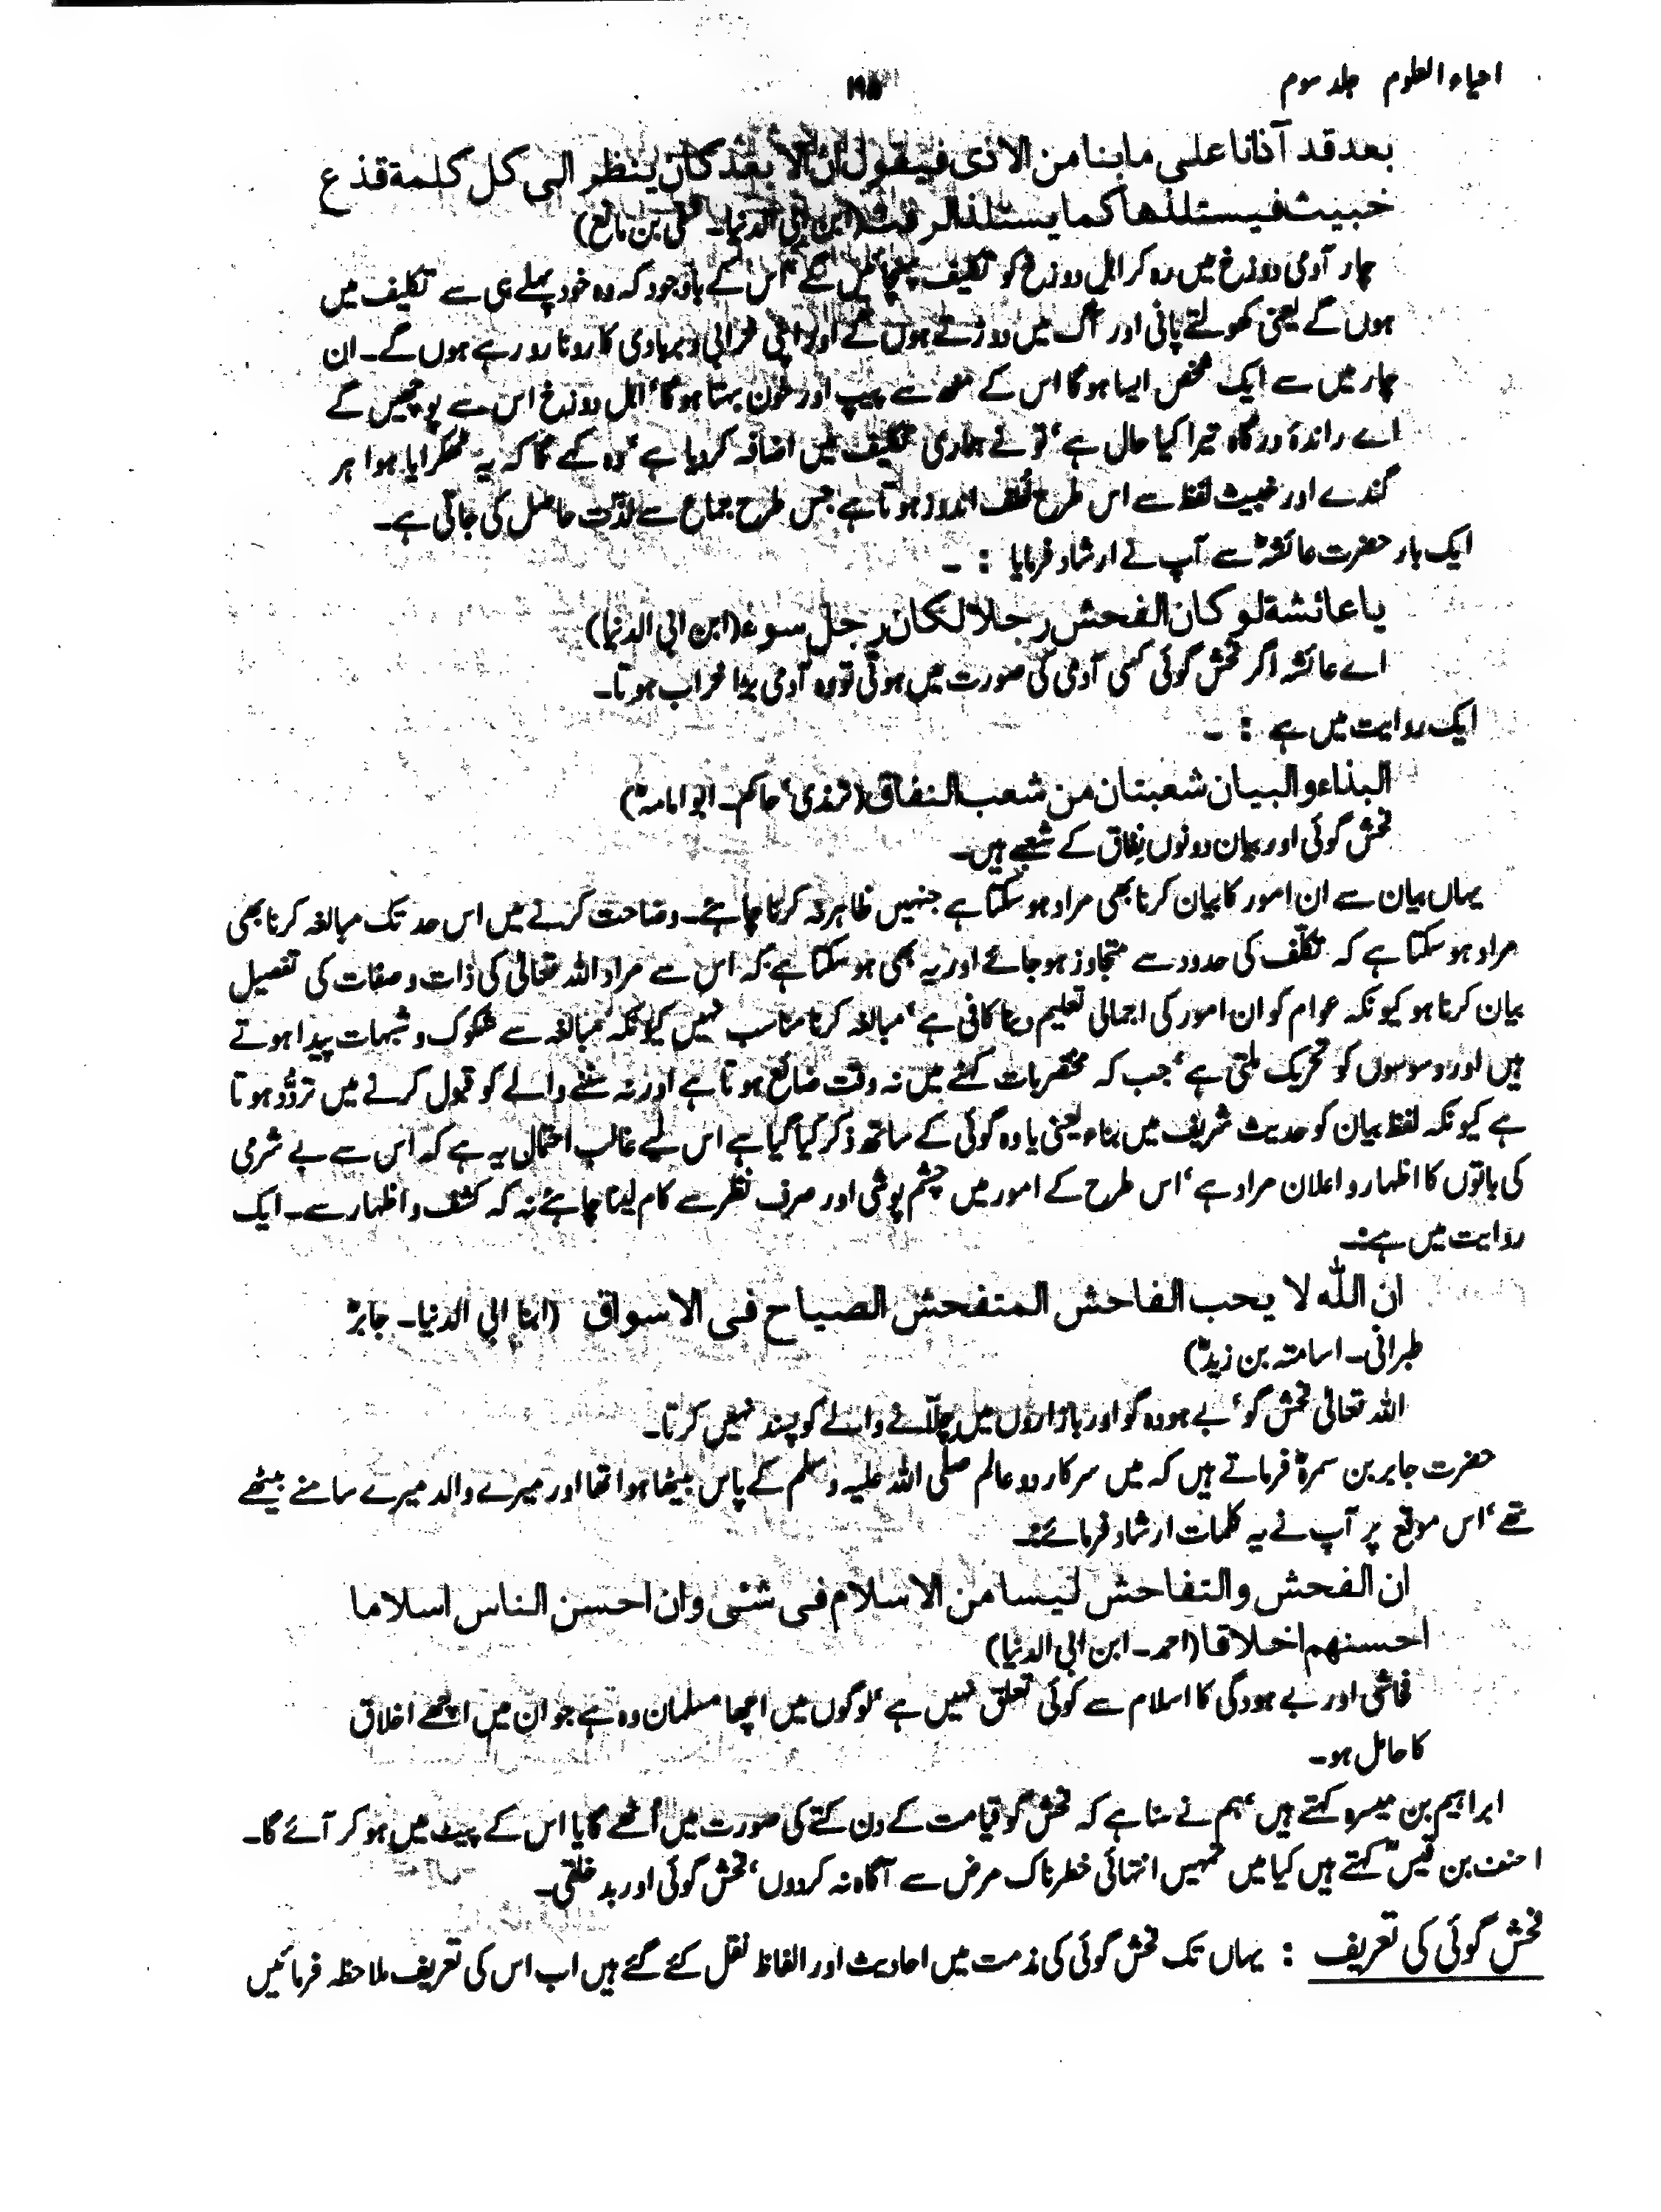 احیاء العلوم جلد سوم
۱۹۵
بعد قد آذانا علی مابنا من الاذی فیقول ان الابعد کان ینظر الی کل کلمة قذع
خبیث فیستلذها کما یستلذ الرفث (ابن ابی الدنیا۔ شفی بن ماتع)
چار آدمی دوزخ میں رہ کر اہل دوزخ کو تکلیف پہنچائیں گے، اس کے باوجود کہ وہ خود پہلے ہی سے تکلیف میں
ہوں گے یعنی کھولتے پانی اور آگ میں دوڑتے ہوں گے اور اپنی خرابی و بربادی کا رونا رو رہے ہوں گے۔ ان
چار میں سے ایک شخص ایسا ہوگا اس کے منہ سے پیپ اور خون بہتا ہوگا، اہل دوزخ اس سے پوچھیں گے
اے راندۂ درگاہ تیرا کیا حال ہے، تو نے ہماری تکلیف میں اضافہ کردیا ہے، وہ کہے گا کہ یہ ٹھکرایا ہوا ہر
گندے اور خبیث لفظ سے اس طرح لطف اندوز ہوتا ہے جس طرح جماع سے لذت حاصل کی جاتی ہے۔
ایک بار حضرت عائشہؓ سے آپ نے ارشاد فرمایا : ۔
یا عائشة لو کان الفحش رجلا لکان رجل سوء (ابن ابی الدنیا)
اے عائشہ اگر فحش گوئی کسی آدمی کی صورت میں ہوتی تو وہ آدمی بڑا خراب ہوتا۔
ایک روایت میں ہے : ۔
البذاء والبیان شعبتان من شعب النفاق (ترمذی، حاکم۔ ابو امامہؓ)
فحش گوئی اور بیان دونوں نفاق کے شعبے ہیں۔
یہاں بیان سے ان امور کا بیان کرنا بھی مراد ہو سکتا ہے جنہیں ظاہر نہ کرنا چاہئے۔ وضاحت کرنے میں اس حد تک مبالغہ کرنا بھی
مراد ہو سکتا ہے کہ تکلّف کی حدود سے متجاوز ہو جائے اور یہ بھی ہو سکتا ہے کہ اس سے مراد اللہ تعالیٰ کی ذات و صفات کی تفصیل
بیان کرنا ہو کیونکہ عوام کو ان امور کی اجمالی تعلیم دینا کافی ہے، مبالغہ کرنا مناسب نہیں کیونکہ مبالغہ سے شکوک و شبہات پیدا ہوتے
ہیں اور وسوسوں کو تحریک ملتی ہے، جب کہ مختصر بات کہنے میں نہ وقت ضائع ہوتا ہے اور نہ سننے والے کو قبول کرنے میں تردُّد ہوتا
ہے کیونکہ لفظ بیان کو حدیث شریف میں بذاء یعنی یاوہ گوئی کے ساتھ ذکر کیا گیا ہے اس لیے غالب احتمال یہ ہے کہ اس سے بے شرمی
کی باتوں کا اظہار و اعلان مراد ہے، اس طرح کے امور میں چشم پوشی اور صرف نظر سے کام لینا چاہئے نہ کہ کشف و اظہار سے۔ ایک
روایت میں ہے:۔
ان اللّٰه لا یحب الفاحش المتفحش الصیاح فی الاسواق (ابن ابی الدنیا۔ جابرؓ
طبرانی۔ اسامتہ بن زیدؓ)
اللہ تعالیٰ فحش گو، بے ہودہ گو اور بازاروں میں چلّانے والے کو پسند نہیں کرتا۔
حضرت جابر بن سمرۃؓ فرماتے ہیں کہ میں سرکار دو عالم صلی اللہ علیہ وسلم کے پاس بیٹھا ہوا تھا اور میرے والد میرے سامنے بیٹھے
تھے، اس موقع پر آپ نے یہ کلمات ارشاد فرمائے:۔
ان الفحش والتفاحش لیسا من الاسلام فی شئی وان احسن الناس اسلاما
احسنهم اخلاقا (احمد۔ ابن ابی الدنیا)
فحاشی اور بے ہودگی کا اسلام سے کوئی تعلق نہیں ہے، لوگوں میں اچھا مسلمان وہ ہے جو ان میں اچھے اخلاق
کا حامل ہو۔
ابراہیم بن میسرہ کہتے ہیں، ہم نے سنا ہے کہ فحش گو قیامت کے دن کتے کی صورت میں اُٹھے گا یا اس کے پیٹ میں ہو کر آئے گا۔
احنف بن قیسؓ کہتے ہیں کیا میں تمہیں انتہائی خطرناک مرض سے آگاہ نہ کردوں، فحش گوئی اور بد خلقی۔
فحش گوئی کی تعریف : یہاں تک فحش گوئی کی مذمت میں احادیث اور الفاظ نقل کئے گئے ہیں اب اس کی تعریف ملاحظہ فرمائیں